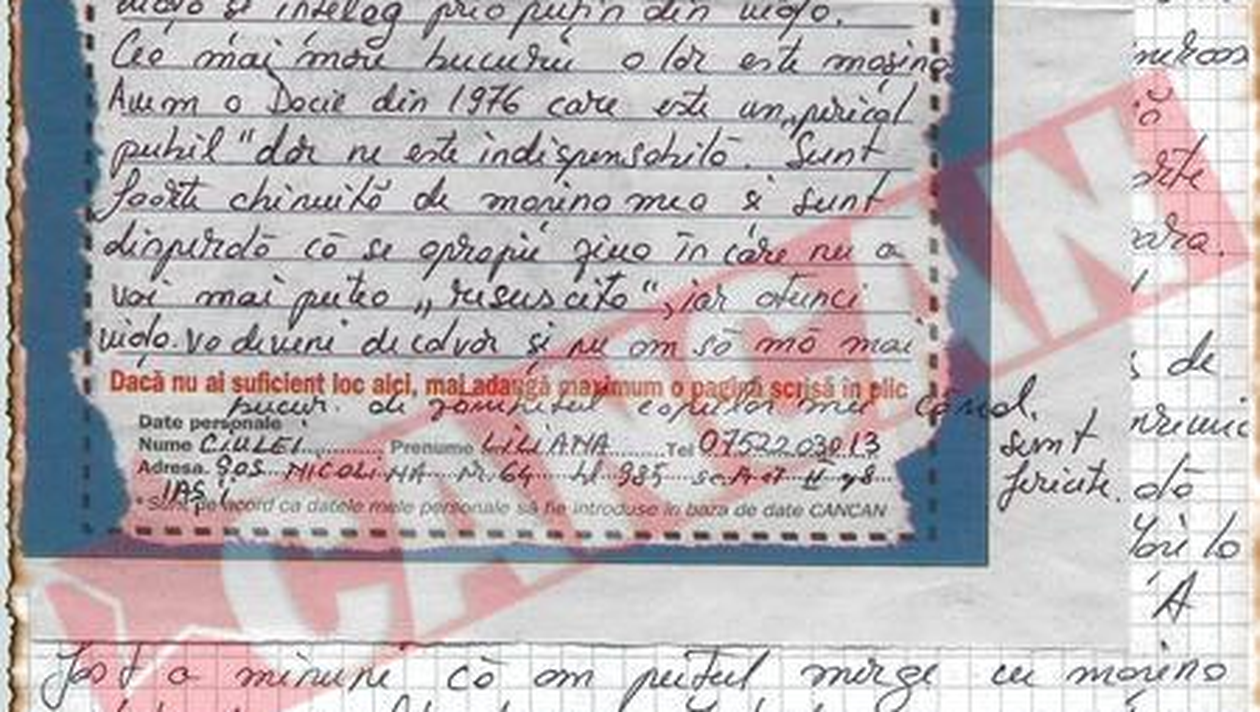 viața și înțeleg prea puțin din viața.
Cea mai mare bucurie a lor este mașina
Avem o Dacie din 1976 care este un „pericol
public" dar ne este indispensabilă. Sunt
foarte chinuită de mașina mea și sunt
disperată că se apropie ziua în care nu o
voi mai putea „resuscita", iar atunci
viața va deveni de calvar și nu am să mă mai
Dacă nu ai suficient loc aici, mai adaugă maximum o pagină scrisă în plic
bucur. de zâmbetul copiilor mei când.
sunt
fericite.
Date personale
Nume CIULEI Prenume LILIANA Tel 0752203013
Adresa ȘOS NICOLINA Nr. 64 bl 985 sc. A et II
IAȘI
* Sunt de acord ca datele mele personale să fie introduse în baza de date CANCAN
CANCAN
de
A
Fost o minune că am putut merge cu mașina